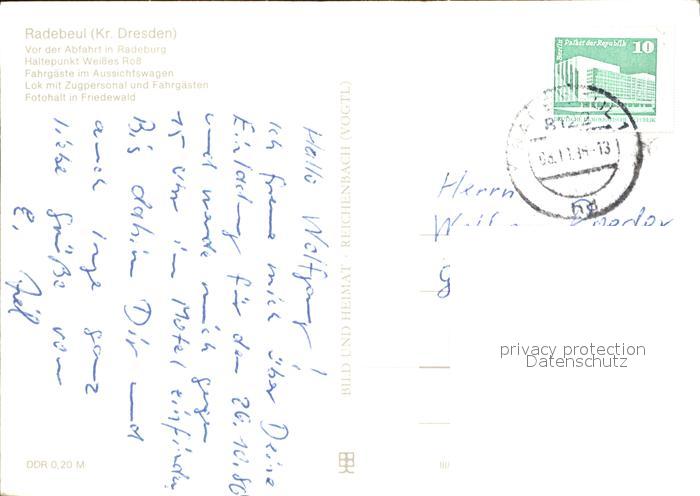 Radebeul (Kr. Dresden)
Vor der Abfahrt in Radeburg
Haltepunkt Weißes Roß
Fahrgäste im Aussichtswagen
Lok mit Zugpersonal und Fahrgästen
Fotohalt in Friedewald
Hallo Wolfgang!
Ich freue mich über Deine
Einladung für den 26.10.86
und werde mich gegen
15 Uhr im Motel einfinden
Bis dahin Dir und
auch Inge ganz
liebe Grüße von
E.
BILD UND HEIMAT · REICHENBACH (VOGTL)
Berlin Palast der Republik 10
DEUTSCHE DEMOKRATISCHE REPUBLIK
8122
Herrn
privacy protection
Datenschutz
DDR 0,20 M